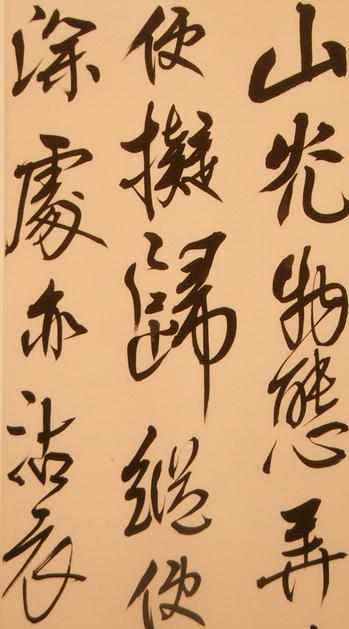 山光物態弄
便擬歸縱使
深處亦沾衣